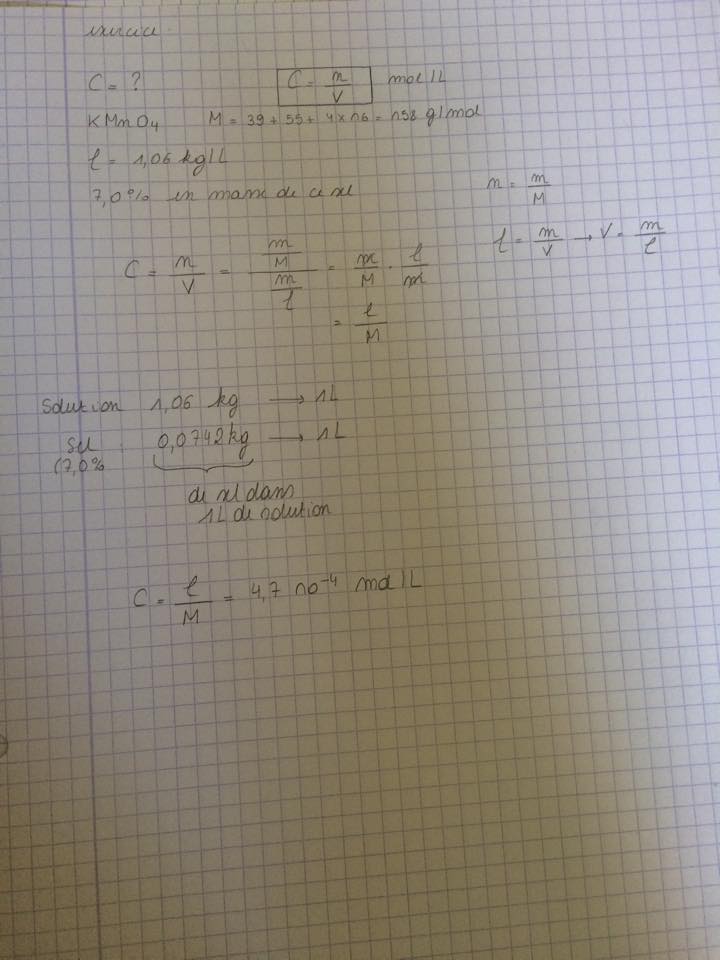 exercice.
C = ?
C = n/V mol/L
KMnO4 M = 39 + 55 + 4 x 16 = 158 g/mol
ρ = 1,06 kg/L
7,0% en masse de ce sel
n = m/M
ρ = m/V → V = m/ρ
C = n/V = (m/M)/(m/ρ) = m/M · ρ/m
= ρ/M
Solution 1,06 kg → 1L
Sel 0,0742kg → 1L
(7,0%
de sel dans
1L de solution
C = ρ/M = 4,7 10⁻⁴ mol/L